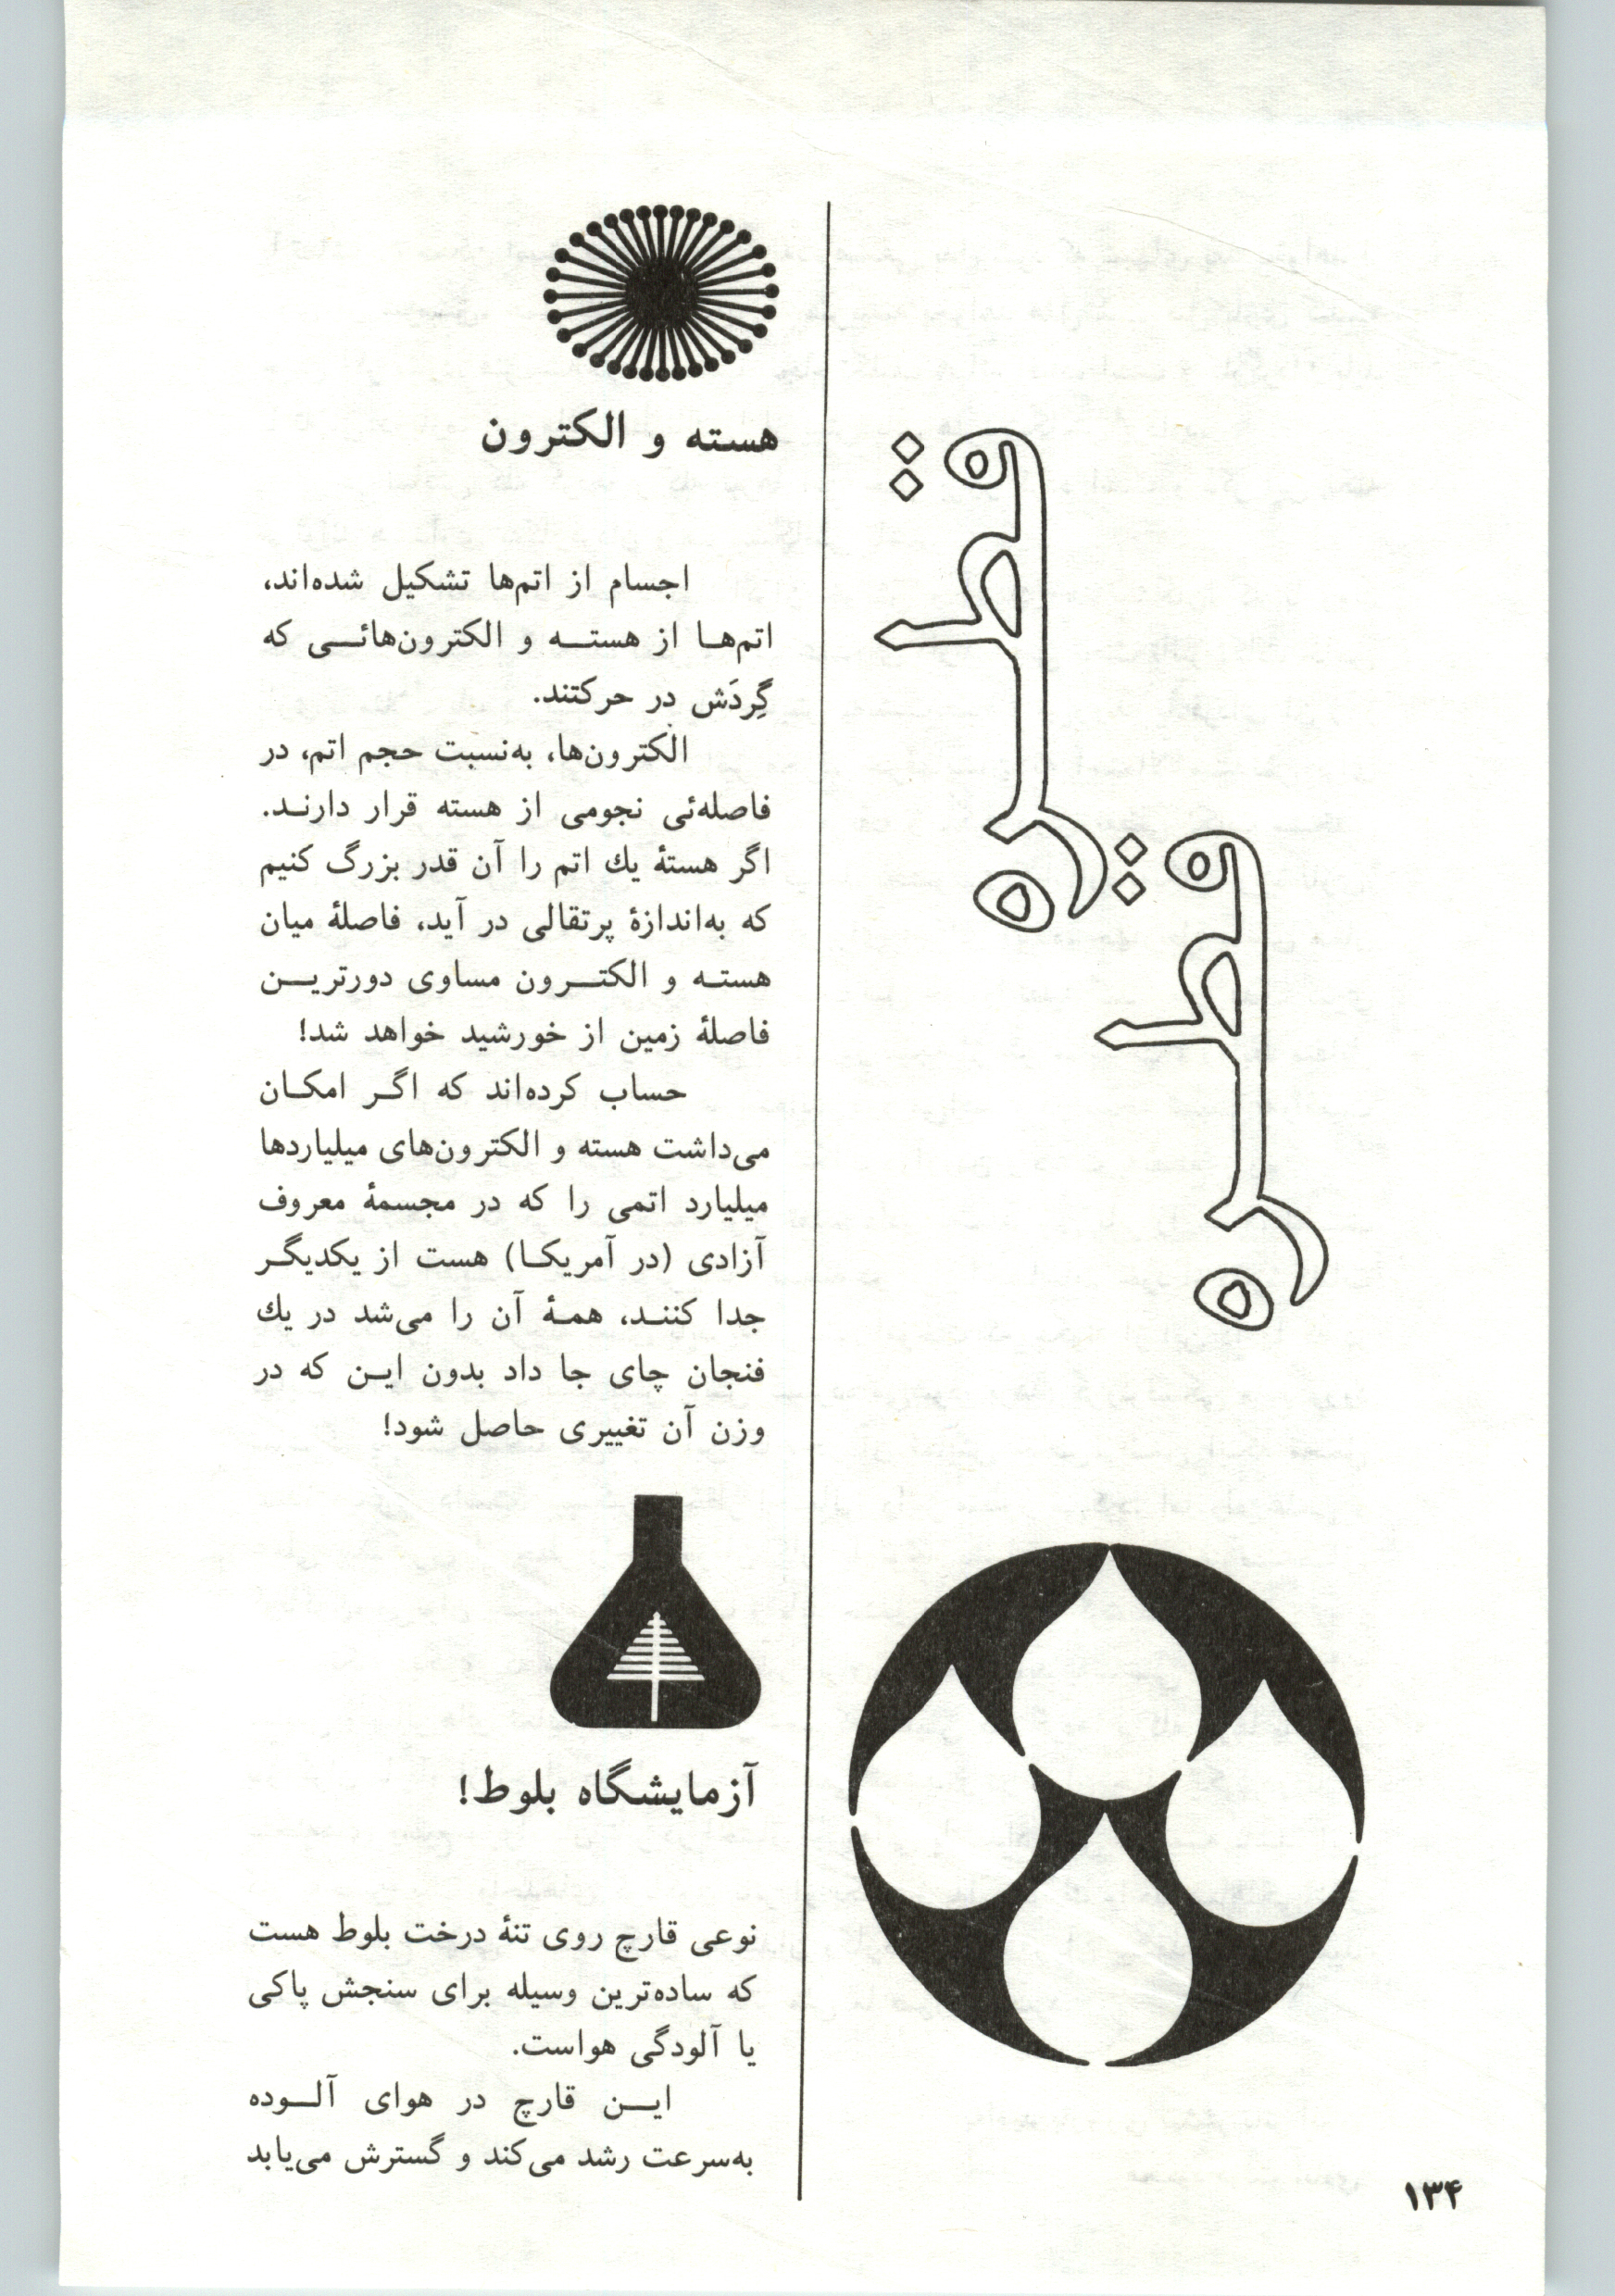 قطره
قطره
هسته و الکترون
اجسام از اتم‌ها تشکیل شده‌اند،
اتم‌هـا از هستـــه و الکترون‌هائـــی که
گِردَش در حرکتند.
الکترون‌ها، به‌نسبت حجم اتم، در
فاصله‌ئی نجومی از هسته قرار دارنـد.
اگر هستهٔ یك اتم را آن قدر بزرگ کنیم
که به‌اندازهٔ پرتقالی در آید، فاصلهٔ میان
هستـه و الکتـــرون مساوی دورتریـــن
فاصلهٔ زمین از خورشید خواهد شد!
حساب کرده‌اند که اگـر امکـان
می‌داشت هسته و الکترون‌های میلیاردها
میلیارد اتمی را که در مجسمهٔ معروف
آزادی (در آمریکـا) هست از یکدیگـر
جدا کننـد، همـهٔ آن را می‌شد در یك
فنجان چای جا داد بدون ایـن که در
وزن آن تغییری حاصل شود!
آزمایشگاه بلوط!
نوعی قارچ روی تنهٔ درخت بلوط هست
که ساده‌ترین وسیله برای سنجش پاکی
یا آلودگی هواست.
ایـــن قارچ در هوای آلـــوده
به‌سرعت رشد می‌کند و گسترش می‌یابد
۱۳۴